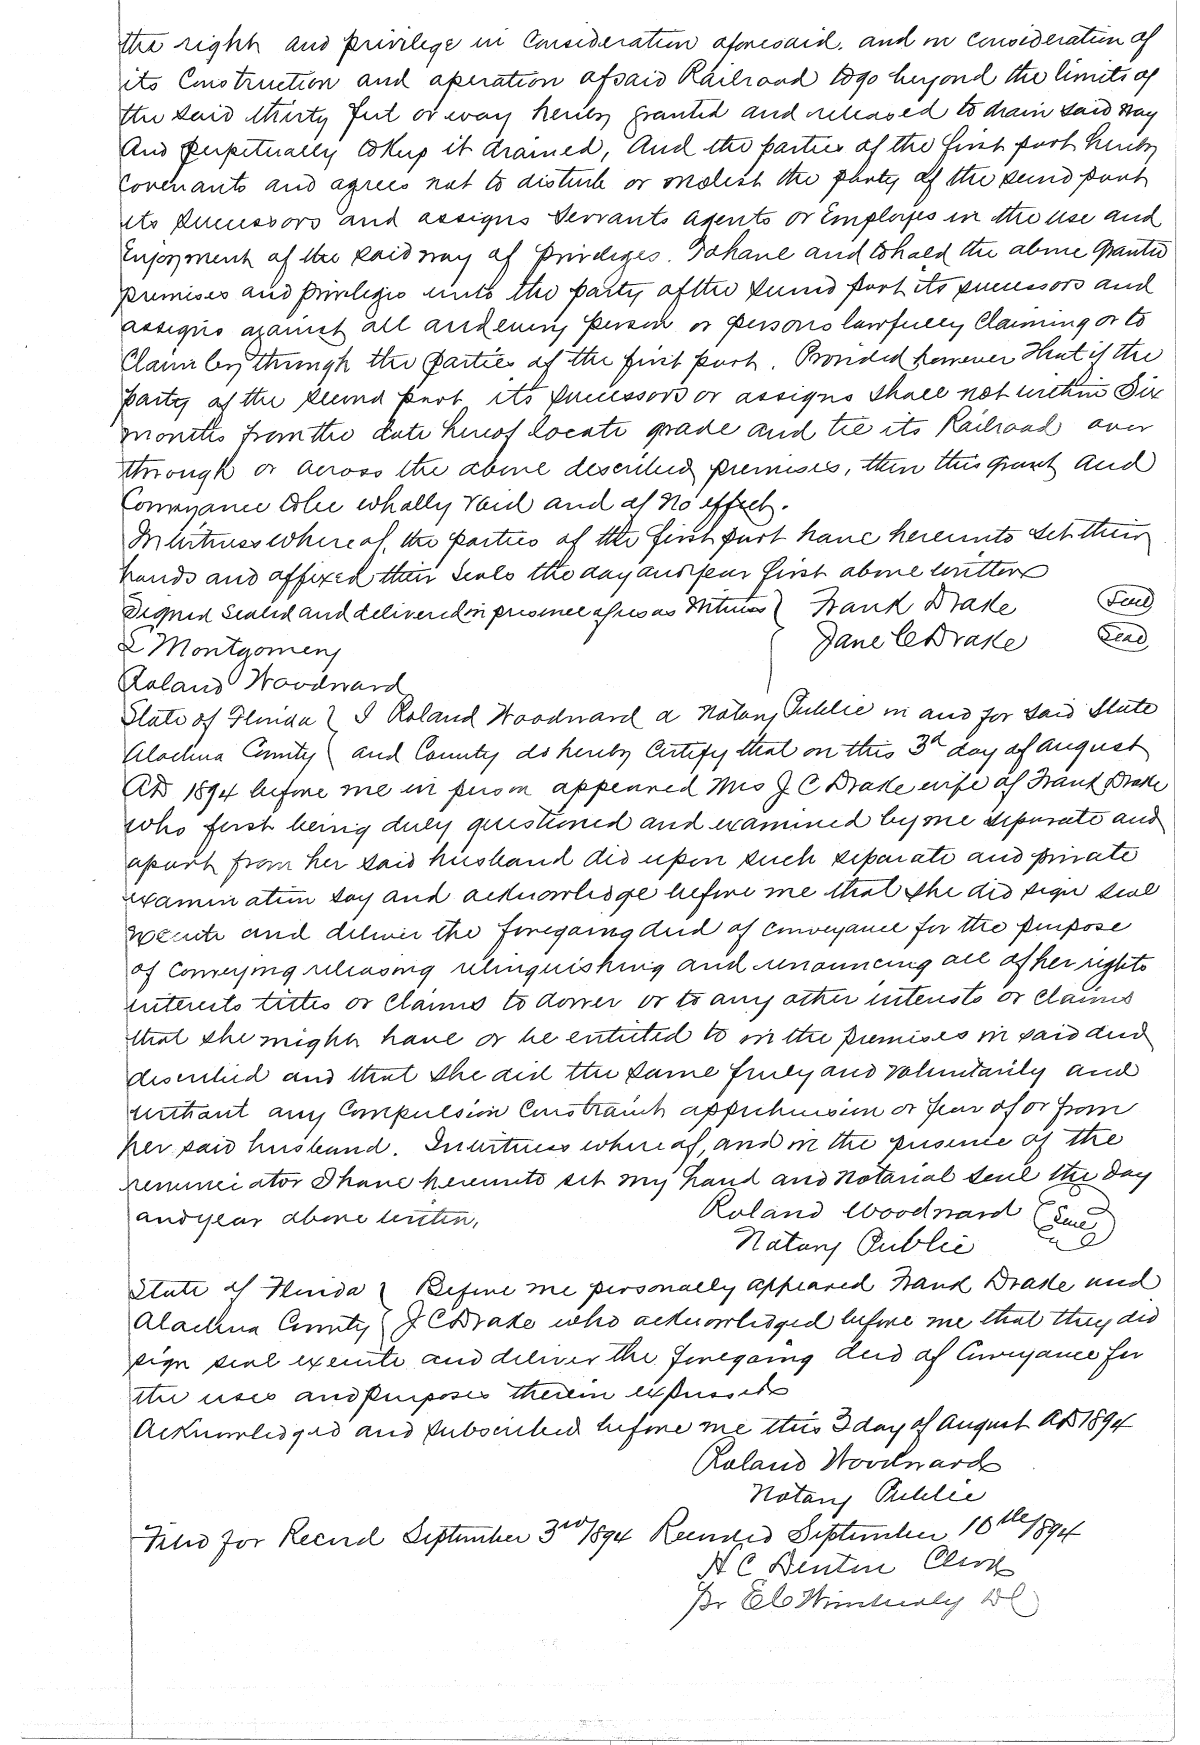 the right and privilege in Consideration aforesaid, and in consideration of
its Construction and operation of said Railroad to go beyond the limits of
the said thirty feet or way hereby granted and released to drain said way
And perpetually to Keep it drained, And the parties of the first part hereby
Covenants and agrees not to disturb or molest the party of the second part
its successors and assigns Servants agents or Employes in the use and
Enjoyment of the said way of privileges. To have and to hold the above granted
premises and privileges unto the party of the second part its successors and
assigns against all and every person or persons lawfully Claiming or to
Claim by through the parties of the first part. Provided however that if the
party of the second part its successors or assigns shall not within Six
months from the date hereof locate grade and tie its Railroad over
through or across the above described premises, then this grant and
Conveyance to be wholly void and of No effect.
In witness whereof, the parties of the first part have hereunto set their
hands and affixed their Seals the day and year first above written
Signed Sealed and delivered in presence of us as Witness } Frank Drake (Seal)
L Montgomery Jane C Drake (Seal)
Roland Woodward
State of Florida } I Roland Woodward a Notary Public in and for said State
Alachua County } and County do hereby Certify that on this 3d day of August
AD 1894 before me in person appeared Mrs J C Drake wife of Frank Drake
who first being duly questioned and examined by me separate and
apart from her said husband did upon such separate and private
examination say and acknowledge before me that she did sign seal
execute and deliver the foregoing deed of conveyance for the purpose
of Conveying releasing relinquishing and renouncing all of her rights
interests titles or Claims to dower or to any other interests or Claims
that she might have or be entitled to in the premises in said deed
described and that she did the same freely and voluntarily and
without any Compulsion Constraint apprehension or fear of or from
her said husband. In witness whereof, and in the presence of the
renunciator I have hereunto set my hand and Notarial Seal the day
and year above written, Roland Woodward (Seal)
Notary Public
State of Florida } Before me personally appeared Frank Drake and
Alachua County } J C Drake who acknowledged before me that they did
sign seal execute and deliver the foregoing deed of Conveyance for
the uses and purposes therein expressed
Acknowledged and subscribed before me this 3 day of August AD 1894
Roland Woodward
Notary Public
Filed for Record September 3rd/1894 Recorded September 10th/1894
H C Denton Clerk
Pr E C Wimberly DC